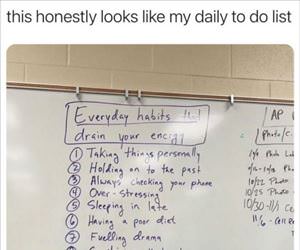 this honestly looks like my daily to do list
Everyday habits that
drain your energy
① Taking things personally
② Holding on to the past
③ Always checking your phone
④ Over-stressing
⑤ Sleeping in late
⑥ Having a poor diet
⑦ Fuelling drama
AP
Photo/C
Photo
10/22 Photo
10/25 Photo
10/30-11/1 Ce
11/6 - Cell Re